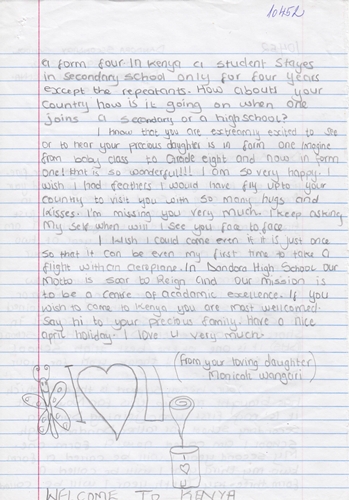 10452
a form four. In Kenya a student stayes
in secondary school only for four years
except the repeatants. How about your
country how is it going on when one
joins a secondary or a highschool?
I know that you are extreamly excited to see
or to hear your precious daughter is in form one. Imagine
from baby class to Grade eight and now in form
one! that is so wonderful!!! I am so very happy. I
wish I had feathers I would have fly upto your
country to visit you with so many hugs and
kisses. I'm missing you very much. I keep asking
my self when will I see you face to face.
I wish I could come even if it is just once
so that it can be even my first time to take a
flight with an aeroplane. In Dandora High School our
Motto is soar to Reign and our mission is
to be a centre of academic excellence. If you
wish to come to Kenya you are most welcomed.
Say hi to your precious family. Have a nice
april holiday. I love u very much.
(From your loving daughter)
Monicah Wangari
I
U
I
U
WELCOME TO KENYA